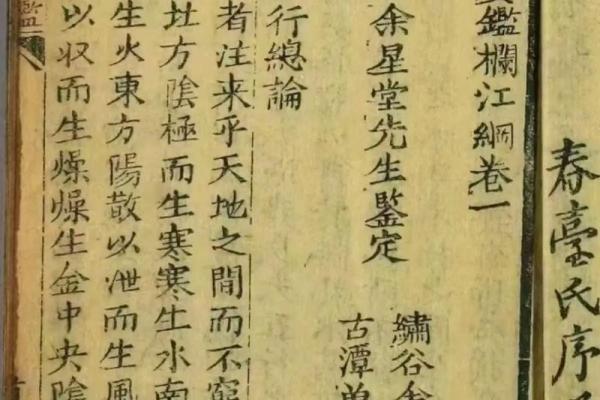 春臺氏序
鑑欄江綱卷一
余星堂先生鑑定
繡谷余
古潭曽
行總論
者注来乎天地之間而不窮
方陰極而生寒寒生水南
生火東方陽散以泄而生風
以収而生燥燥生金中央陰
鑑